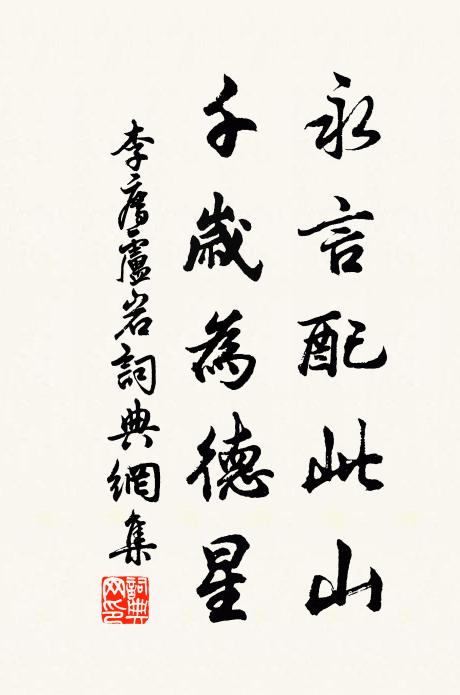 永言配此山
千歲為德星
李廌靈岩詞典網集
詞典網印